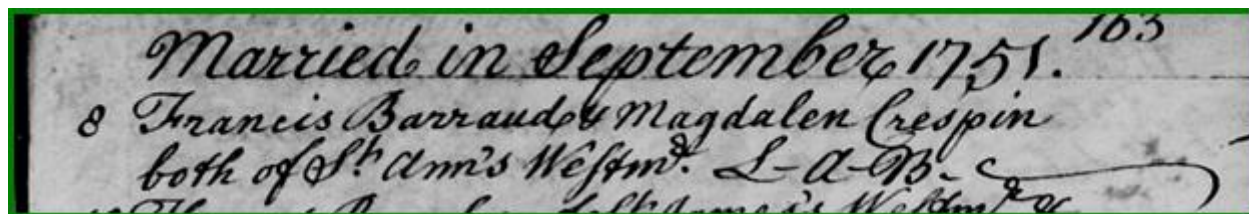 163
Married in September 1751.
8 Francis Barraud & Magdalen Crespin
both of St. Ann's Westmr. L-A-B.
St. James's Westmr. &